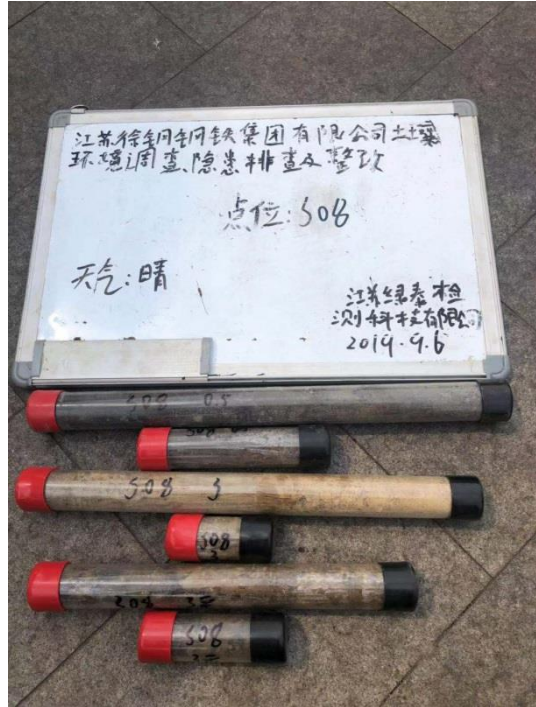 江苏徐钢钢铁集团有限公司土壤
环境调查、隐患排查及整改
点位:S08
天气:晴
江苏绿泰检
测科技有限公司
2019.9.6
S08 0.5
S08
S08 3
S08
3
S08
S08